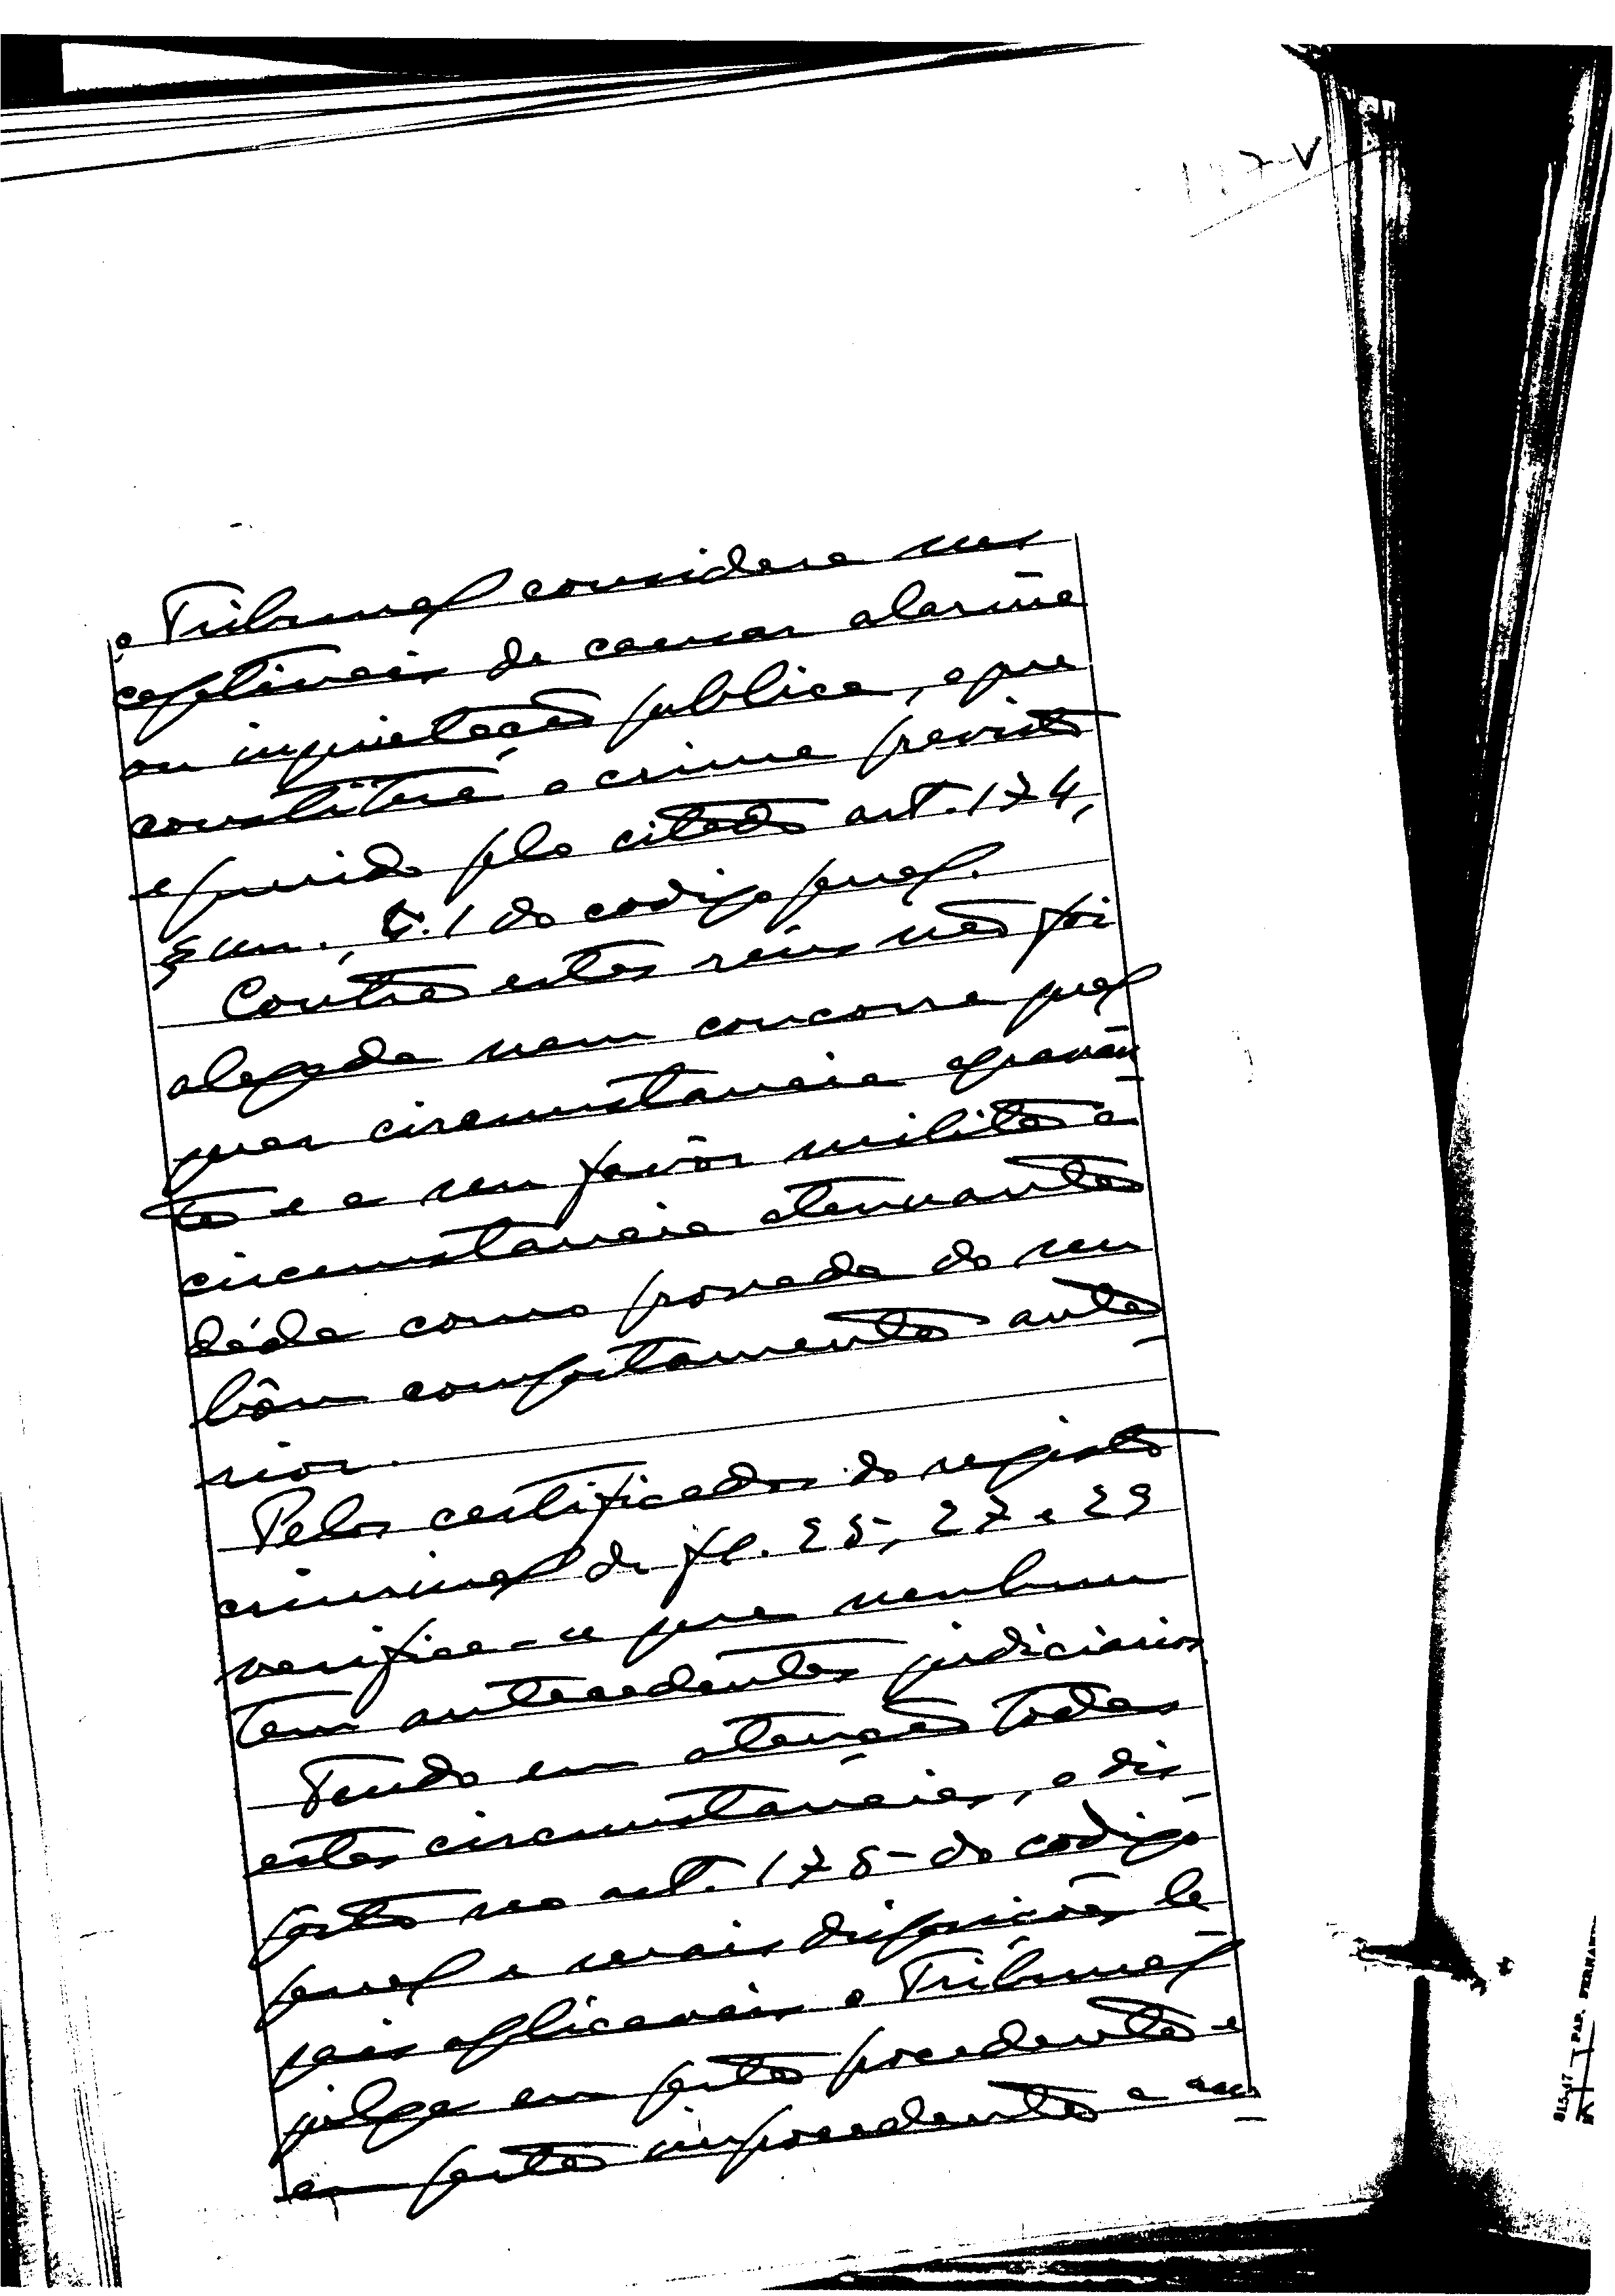 187-V
o Tribunal considera sus
ceptiveis de causar alarme
ou inquietação publica, o que
constitue o crime previsto
e punido pelo citado art. 174,
§ un., n.1 do codigo penal.
Contra estes réus não foi
alegada nem concorre qual
quer circumstancia agravan
te e a seu favôr milita a
circumstancia atenuante
dáda como provada do seu
bôm comportamento ante
rior.
Pelos certificados do registo
criminal de fl. 25, 27 e 29
verifica-se que nenhum
tem antecedentes judiciarios
Tendo em atenção todas
estas circumstancias, o dis
posto no art. 175 do codigo
penal e mais disposições le
gais aplicaveis o Tribunal
julga em parte procedente e
em parte improcedente a acu
815-17 PAP. FERNAND